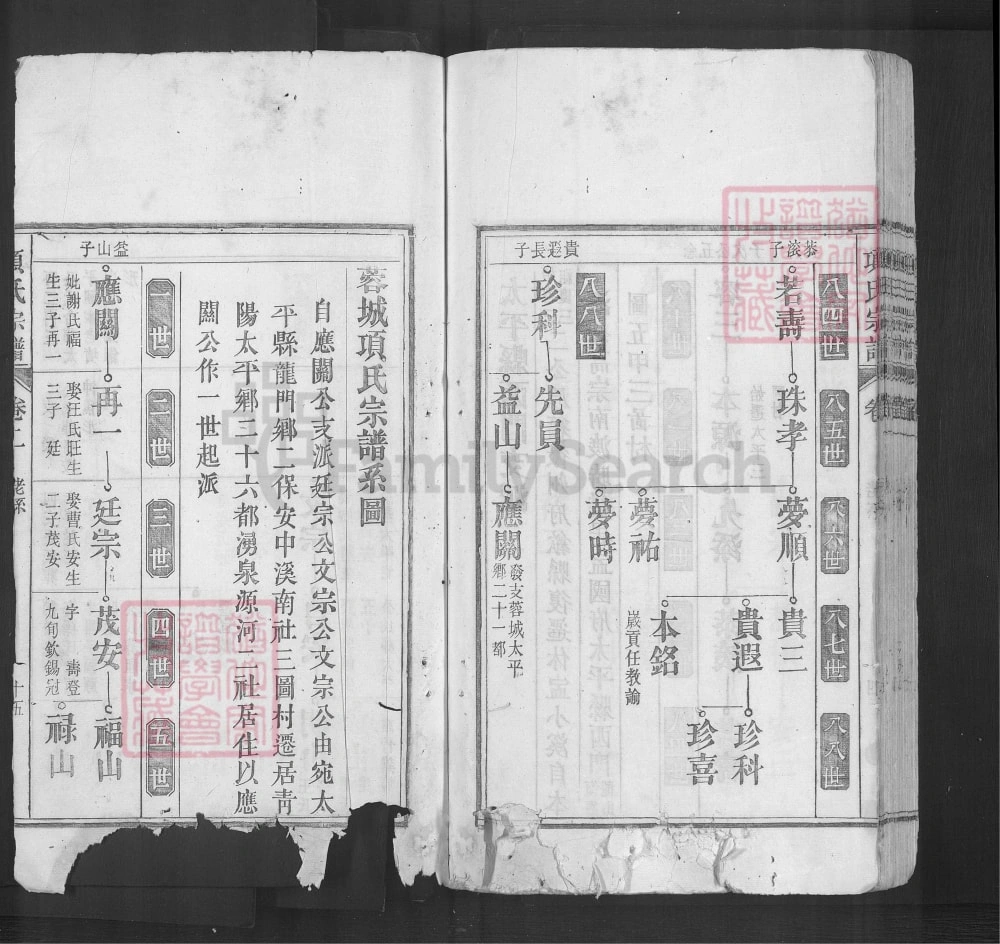 項氏宗譜
恭滾子
八四世
八五世
八六世
八七世
八八世
若壽
珠孝
夢順
貴三
貴遐
珍科
珍喜
本銘
歲貢任教諭
夢祐
夢時
貴遐長子
八八世
珍科
先員
益山
應關
發支蓉城太平
鄉二十一都
蓉城項氏宗譜系圖
自應關公支派廷宗公文宗公文宗公由宛太
平縣龍門鄉二保安中溪南社三圖村遷居青
陽太平鄉三十六都湧泉源河一社居住以應
關公作一世起派
一世
二世
三世
四世
五世
益山子
應關
妣謝氏福
生三子再一
再一
娶汪氏旺生
三子 廷
廷宗
娶曹氏安生
二子茂安
茂安
字 壽登
九旬欽錫冠
福山
祿山
項氏宗譜
卷二
十五
FamilySearch